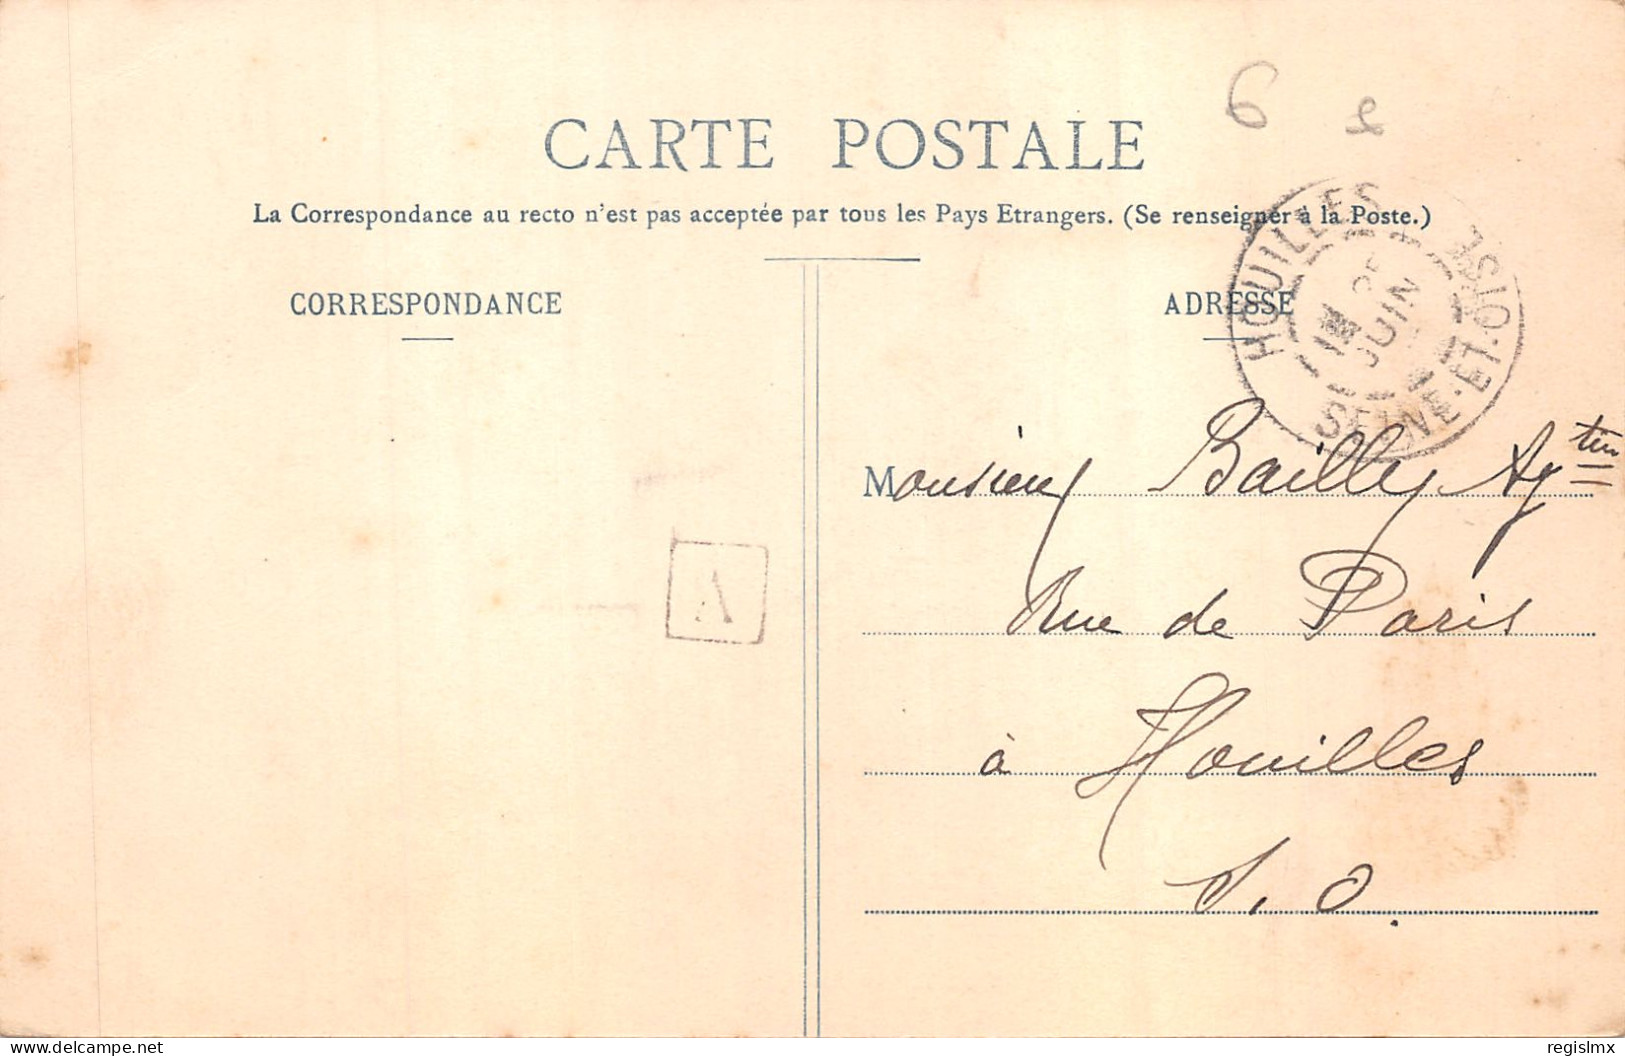 6 8
CARTE POSTALE
La Correspondance au recto n'est pas acceptée par tous les Pays Etrangers. (Se renseigner à la Poste.)
CORRESPONDANCE
ADRESSE
HOUILLES
JUIN
SEINE-ET-OISE
Monsieur Bailly
A
Rue de Paris
à Houilles
S. O.
delcampe.net
regislmx